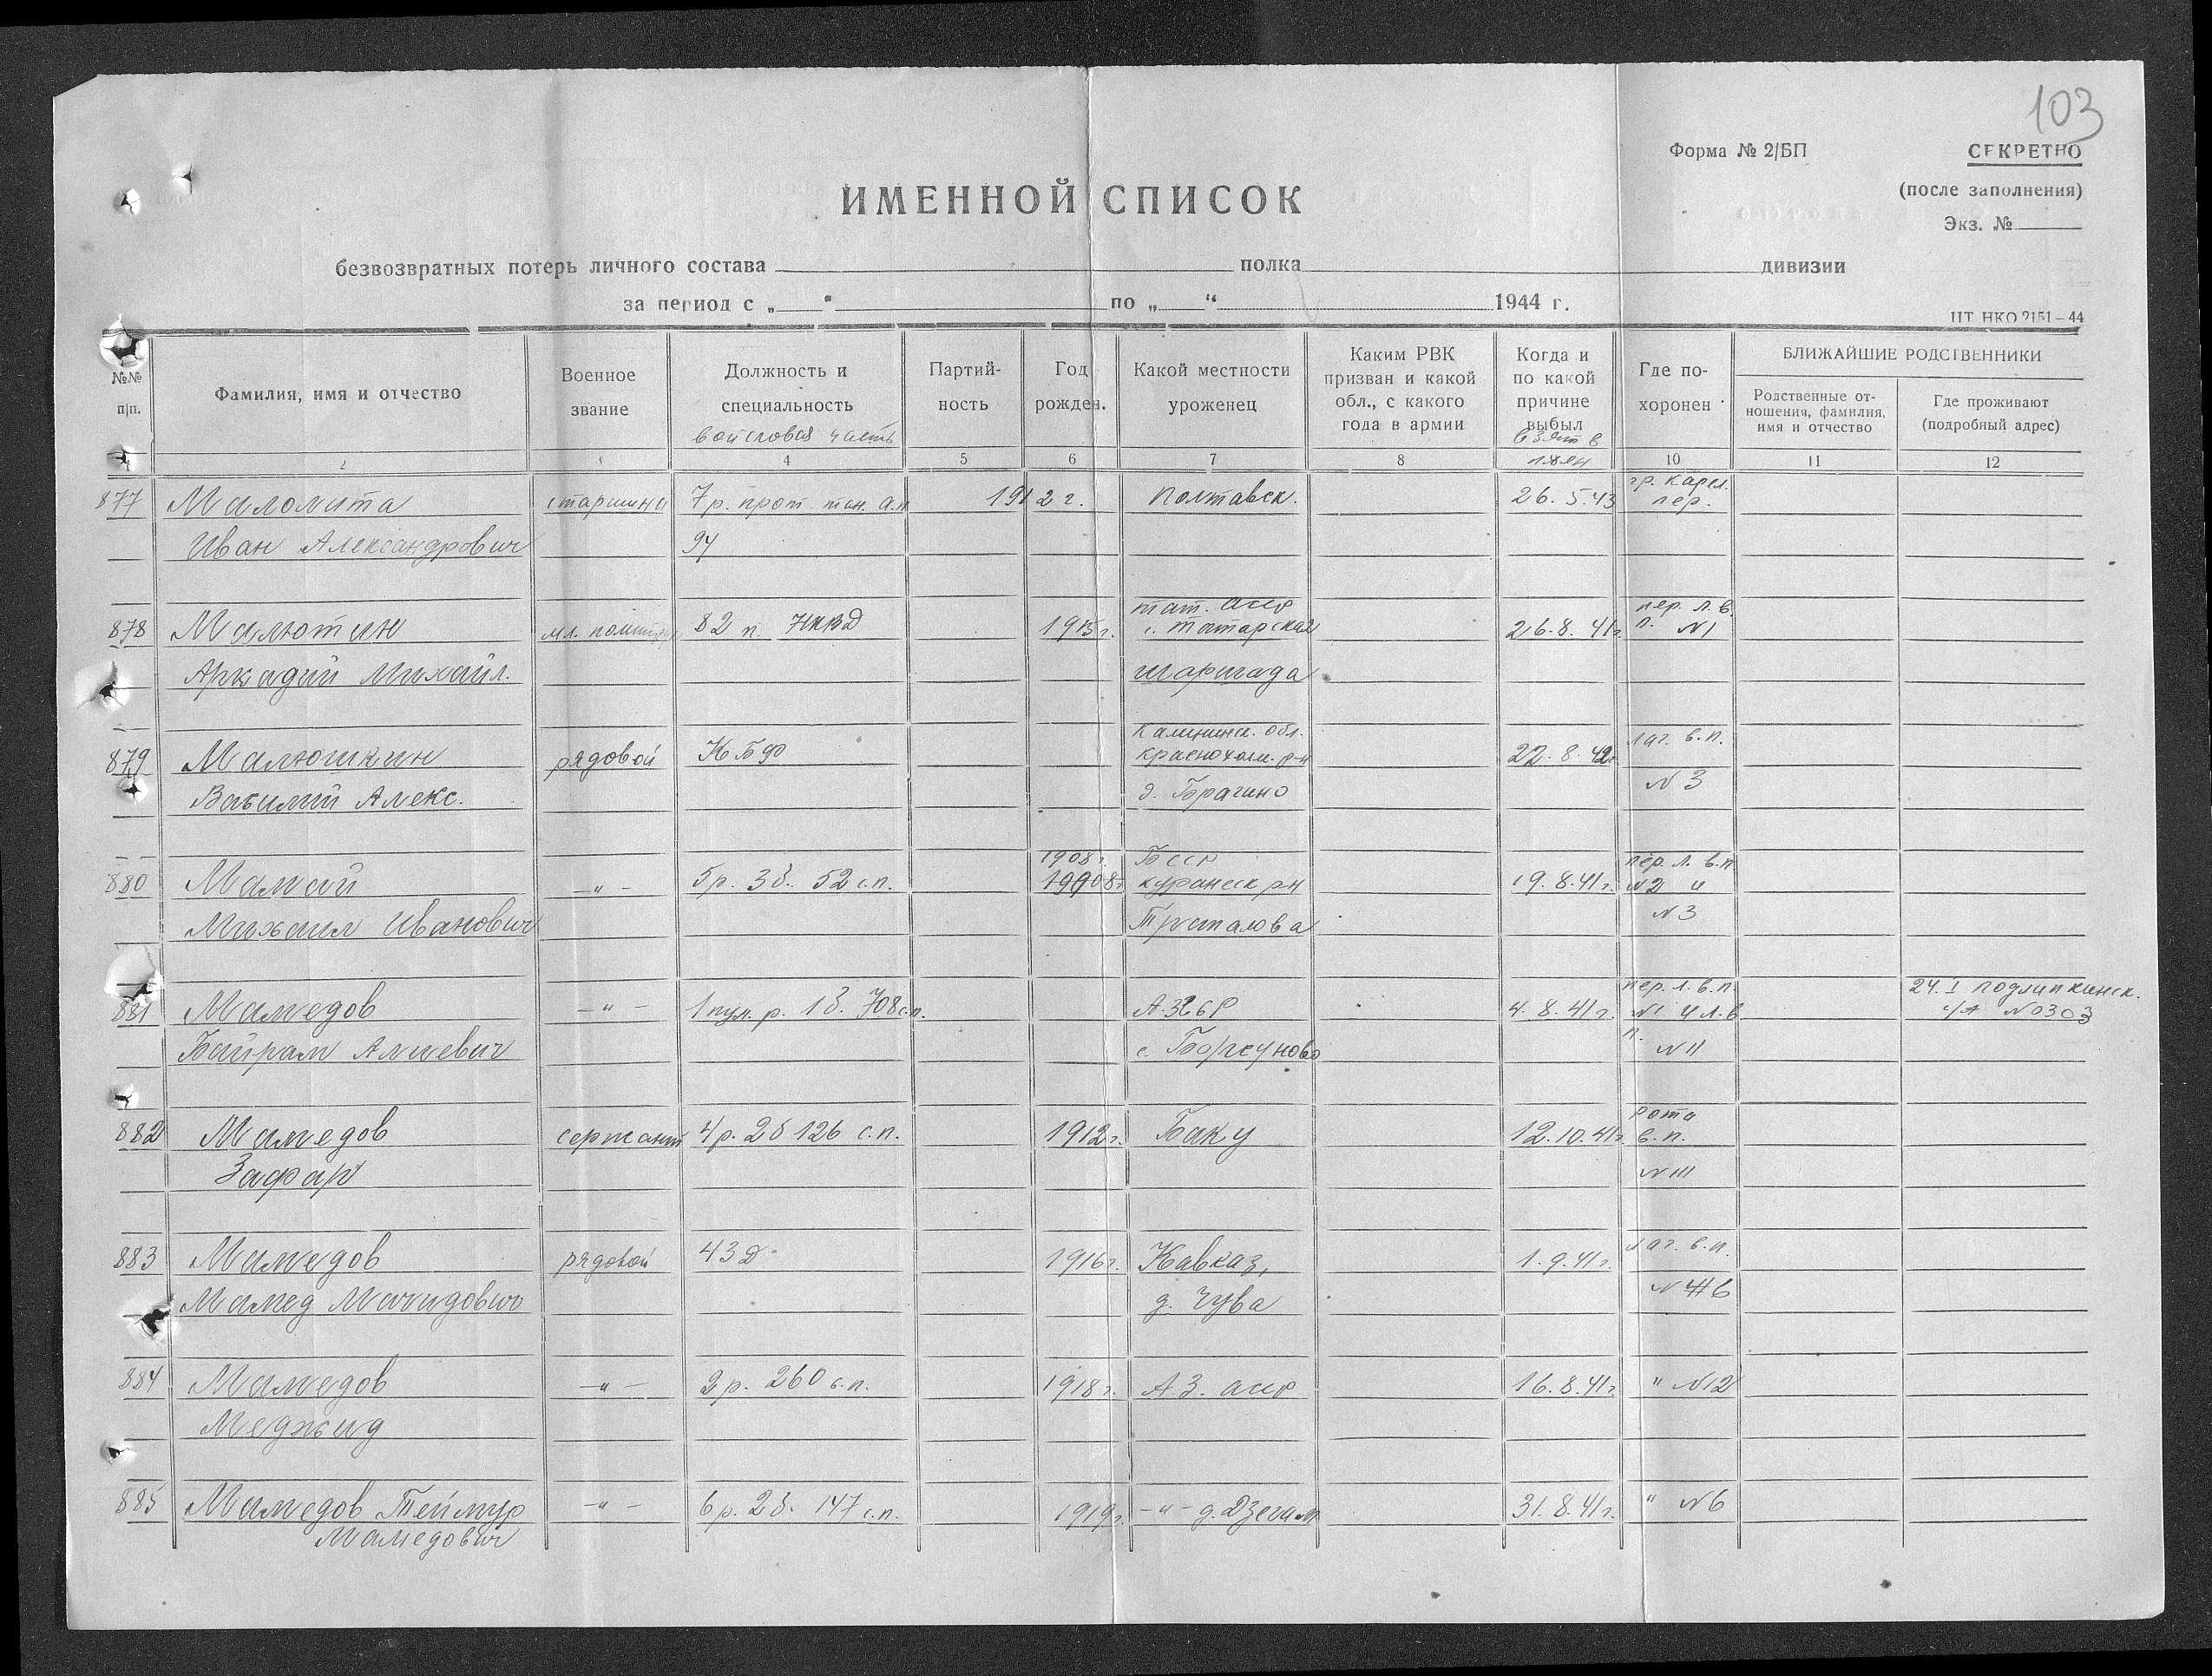 103
Форма № 2/БП
СЕКРЕТНО
(после заполнения)
Экз. №
ИМЕННОЙ СПИСОК
безвозвратных потерь личного состава полка дивизии
за период с „ “ по „ “ 1944 г.
ЦТ НКО 2151—44
№№ п/п.
Фамилия, имя и отчество
Военное звание
Должность и специальность
войсковая часть
Партий-ность
Год рожден.
Какой местности уроженец
Каким РВК призван и какой обл., с какого года в армии
Когда и по какой причине выбыл
взят в плен
Где по-хоронен
БЛИЖАЙШИЕ РОДСТВЕННИКИ
Родственные от-ношения, фамилия, имя и отчество
Где проживают (подробный адрес)
2 3 4 5 6 7 8 10 11 12
877 Маломита старшина 7 р. прот. тан. а.п. 1912 г. Полтавск. 26.5.43 гр. карел. пер.
Иван Александрович 94
878 Малютин мл. политрук 82 п. НКВД 1915 г. тат. асср с. татарская 26.8.41 г. пер. л. в. п. №1
Аркадий Михайл. шаршада
879 Малюшкин рядовой КБФ Калининс. обл. краснохолм. р-н 22.8.42 лаг. в.п.
Василий Алекс. д. Брагино №3
880 Мамай —"— 5 р. 3 б. 52 с.п. 1908 г. 1908 г. БССР рн 19.8.41 г. пер. л. в.п. №2 и
Михаил Иванович №3
881 Мамедов —"— 1 пул. р. 1 б. 708 с.п. 4.8.41 г. пер. л. в.п. №1 и л. в п. 24. I подлипкинск. №0303
Байрам Алиевич с. №11
882 Мамедов сержант 4 р. 2 б 126 с.п. 1912 г. Баку 12.10.41 г. рота в.п.
Зафар №III
883 Мамедов рядовой 43 д. 1916 г. Кавказ, 1.9.41 г. лаг. в.п.
Мамед д. Чува
884 Мамедов —"— 2 р. 260 с.п. 1918 г. Аз. асср 16.8.41 г. " №12
Меджид
885 Мамедов Теймур —"— 6 р. 2 б. 147 с.п. 1919 г. —"— д. Дзегам 31.8.41 г. " №6
Мамедович